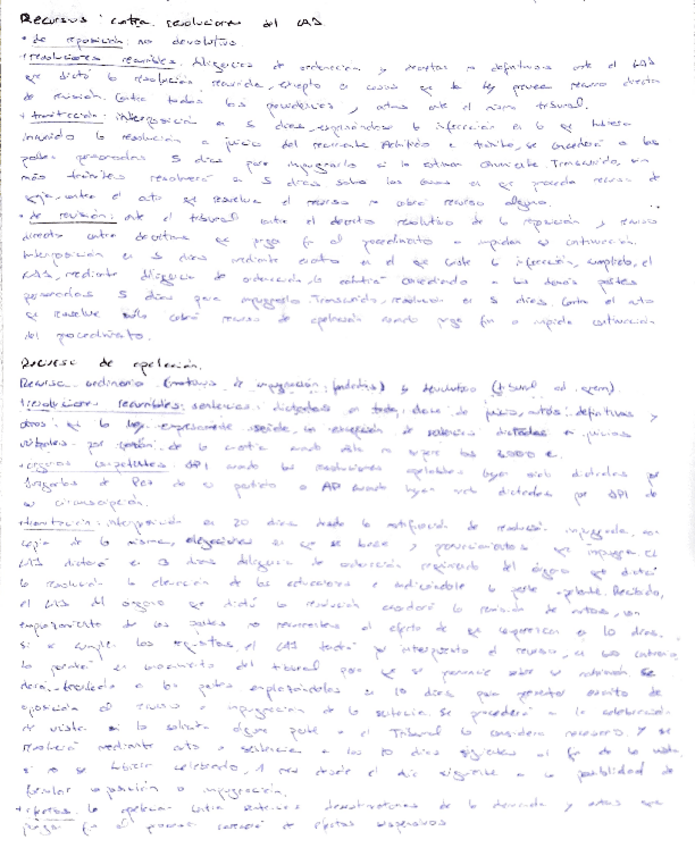 Recursos contra resoluciones del LAJ
• de reposición: no devolutivo
resoluciones recurribles: diligencias de ordenación y decretos no definitivos ante el LAJ
que dictó la resolución recurrida, excepto en casos en que la ley prevea recurso directo
de revisión. Contra todas las providencias y autos ante el mismo tribunal.
tramitación: interposición en 5 días, expresándose la infracción en la que hubiera
incurrido la resolución a juicio del recurrente. Admitido a trámite, se concederá a las
partes personadas 5 días para impugnarlo si lo estiman conveniente. Transcurrido, sin
más trámites resolverá en 5 días. Salvo los casos en que proceda recurso de
queja, contra el auto que resuelva el recurso no cabrá recurso alguno.
• de revisión: ante el tribunal contra el decreto resolutivo de la reposición y recurso
directo contra decretos que pongan fin al procedimiento o impidan su continuación.
Interposición en 5 días mediante escrito en el que conste la infracción, cumplido, el
LAJ, mediante diligencia de ordenación, lo admitirá concediendo a las demás partes
personadas 5 días para impugnarlo. Transcurrido, resolverá en 5 días. Contra el auto
que resuelve sólo cabrá recurso de apelación cuando ponga fin o impida continuación
del procedimiento.
Recurso de apelación.
Recurso ordinario (motivos de impugnación: ) y devolutivo (tribunal ad quem).
resoluciones recurribles: sentencias dictadas en toda clase de juicio, autos definitivos y
otros que la ley expresamente señale, con excepción de sentencias dictadas en juicios
verbales por razón de la cuantía cuando ésta no supere los 3000 €.
órganos competentes: JPI cuando las resoluciones apelables hayan sido dictadas por
Juzgados de Paz de su partido o AP cuando hayan sido dictadas por JPI de
su circunscripción.
tramitación: interposición en 20 días desde la notificación de resolución impugnada, con
copia de la misma, alegaciones en que se base y pronunciamientos que impugna. El
LAJ dictará en 3 días diligencia de ordenación requiriendo del órgano que dictó
la resolución la elevación de las actuaciones e indicándole la parte apelante. Recibido,
el LAJ del órgano que dictó la resolución acordará la remisión de autos, con
emplazamiento de las partes no recurrentes al efecto de que comparezcan en 10 días.
Si se cumplen los requisitos, el LAJ tendrá por interpuesto el recurso, en caso contrario
lo pondrá en conocimiento del tribunal para que se pronuncie sobre su admisión. Se
dará traslado a las partes emplazándolas en 10 días para presentar escrito de
oposición al recurso o impugnación de la sentencia. Se procederá a la celebración
de vista si lo solicita alguna parte o el Tribunal lo considera necesario. Y se
resolverá mediante auto o sentencia a los 10 días siguientes al fin de la vista,
si no se hubiere celebrado, 1 mes desde el día siguiente a la posibilidad de
formular oposición o impugnación.
efectos: la apelación contra sentencias desestimatorias de la demanda y autos que
pongan fin al proceso carecerá de efectos suspensivos